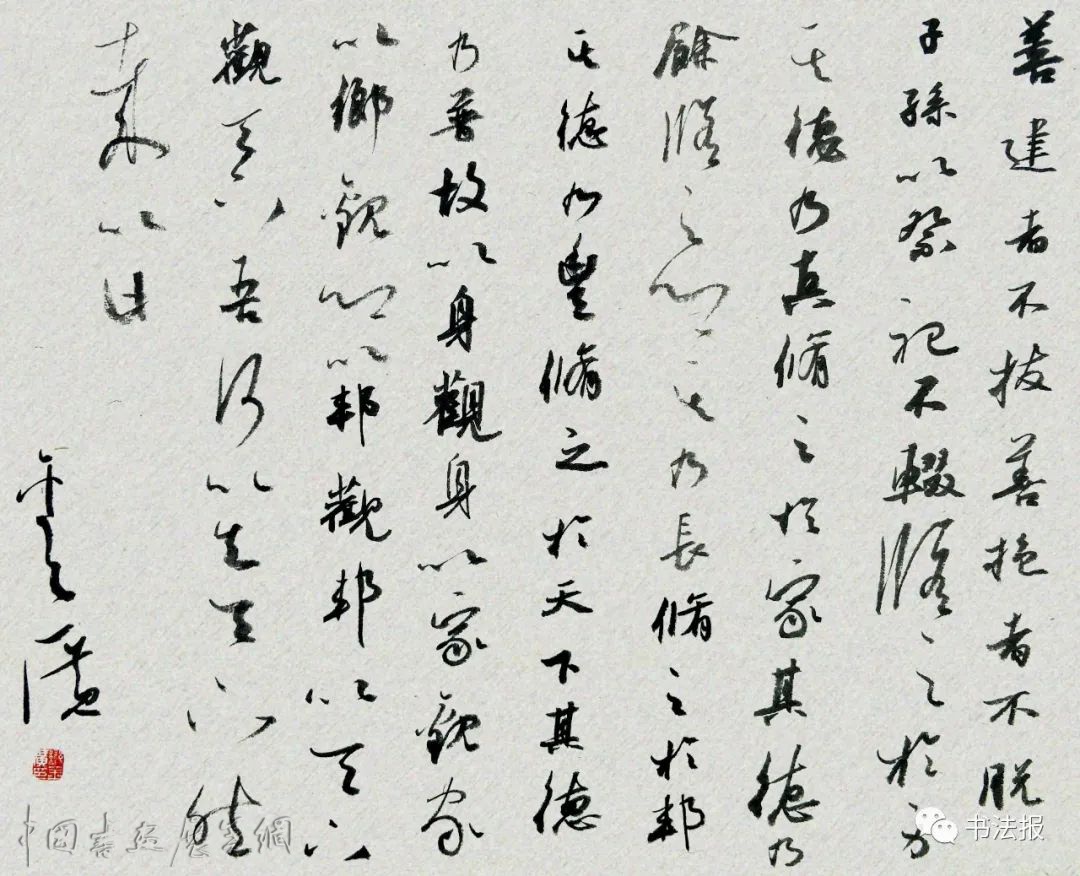 善建者不拔善抱者不脱
子孫以祭祀不輟脩之於身
其德乃真脩之於家其德乃
餘脩之鄉其乃長脩之於邦
其德乃豐脩之於天下其德
乃普故以身觀身以家觀家
以鄉觀鄉以邦觀邦以天下
觀天下吾何以知天下然
哉以此
书法报